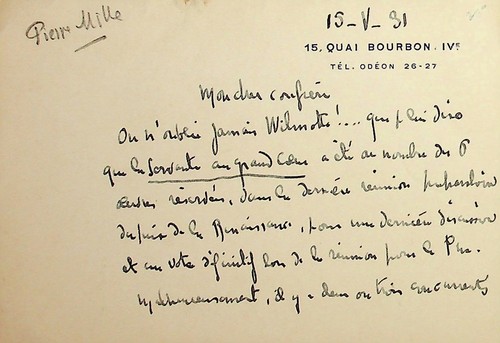 Pierre Mille
15-V-31
15, QUAI BOURBON. IVE
TÉL. ODÉON 26-27
Mon cher confrère
On n'oublie jamais Wilmotte!.... que je lui dise
que la Servante au grand Cœur a été au nombre des 6
œuvres réservées, dans la dernière réunion préparatoire
du prix de la Renaissance, pour une dernière discussion
et au vote définitif lors de la réunion pour le Prix.
Malheureusement, il y a deux ou trois concurrents